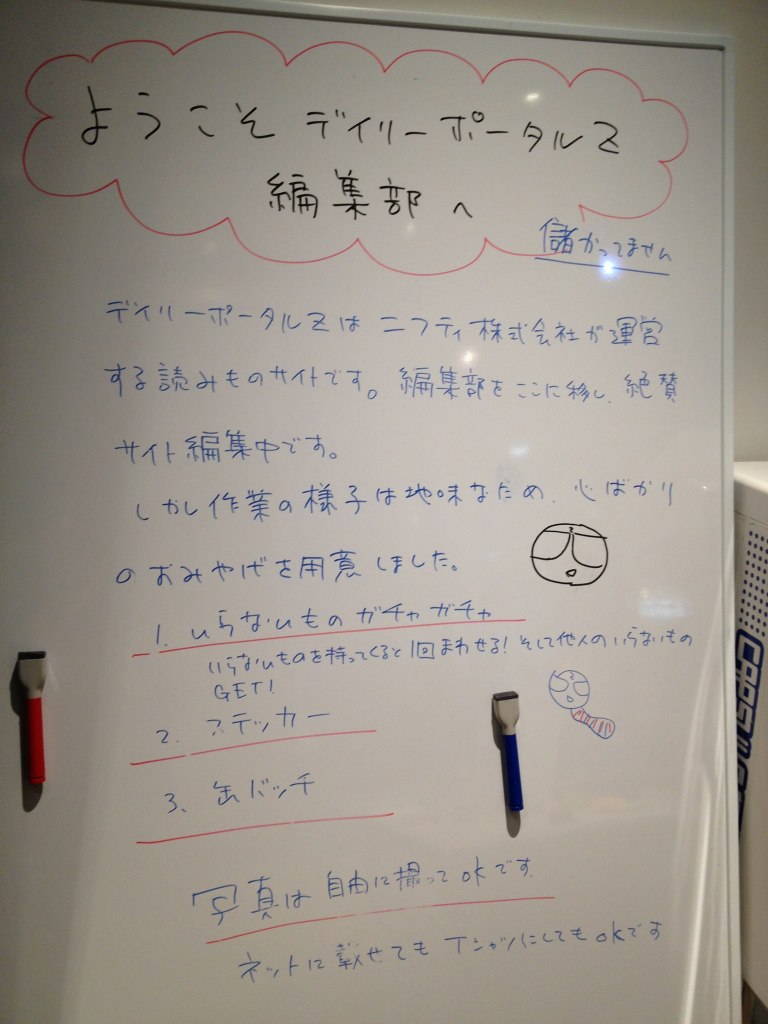 ようこそ デイリーポータルZ
編集部へ
儲かってません
デイリーポータルZは ニフティ株式会社が運営
する読みものサイトです。編集部をここに移し、絶賛
サイト編集中です。
しかし作業の様子は地味なため、心ばかり
のおみやげを用意しました。
1. いらないもの ガチャガチャ
いらないものを持ってくると1回まわせる! そして他人のいらないもの
GET!
2. ステッカー
3. 缶バッチ
写真は自由に撮ってokです
ネットに載せても Tシャツにしてもokです